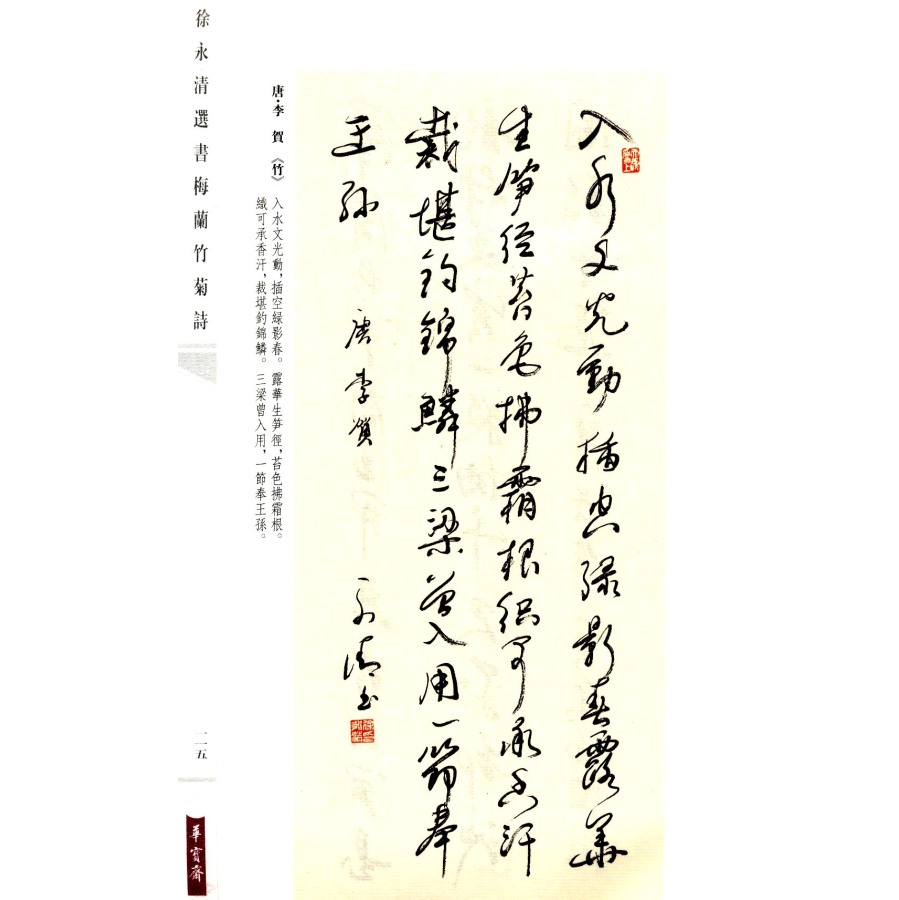 徐永清選書梅蘭竹菊詩
一二五
華寶齋
唐·李賀《竹》
入水文光動，插空緑影春。露華生笋徑，苔色拂霜根。
織可承香汗，裁堪釣錦鱗。三梁曾入用，一節奉王孫。
入水文光動插空緑影春露華
生笋徑苔色拂霜根織可承香汗
裁堪釣錦鱗三梁曾入用一節奉
王孫 唐李賀 永清書